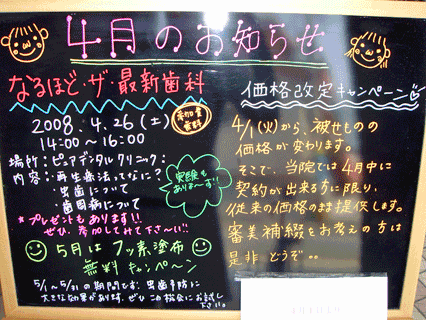 4月のお知らせ
なるほど・ザ・最新歯科
2008. 4. 26 (土)
14:00 〜 16:00
参加費
無料
場所: ピュアデンタルクリニック
内容: ・再生療法ってなに?
・虫歯について
・歯周病について
実験も
ありまーす!!
*プレゼントもあります!!
ぜひ、参加してみて下さーい!!
5月は フッ素塗布
無料キャンペーン
5/1 〜 5/31の期間です。虫歯予防に
大きな効果があります。ぜひこの機会にお試し
下さい。
価格改定キャンペーン
4/1 (火)から、被せものの
価格が変わります。
そこで、当院では4月中に
契約が出来る方に限り、
従来の価格のまま提供します。
審美補綴をお考えの方は
是非どうぞ。。